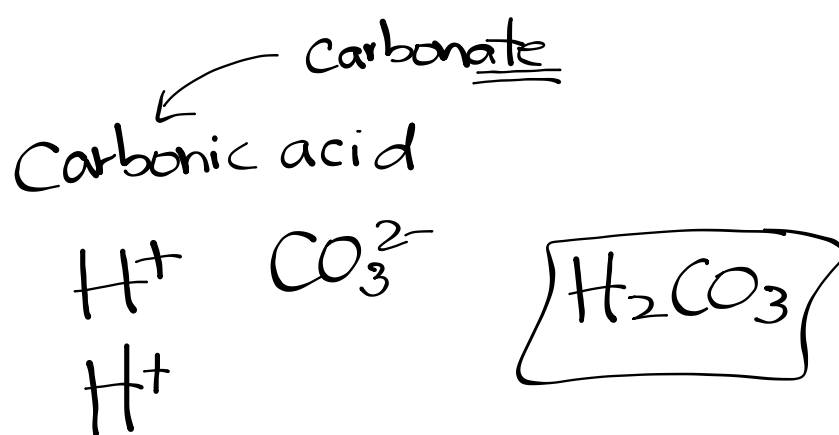 carbonate
Carbonic acid
H⁺ CO₃²⁻
H₂CO₃
H⁺